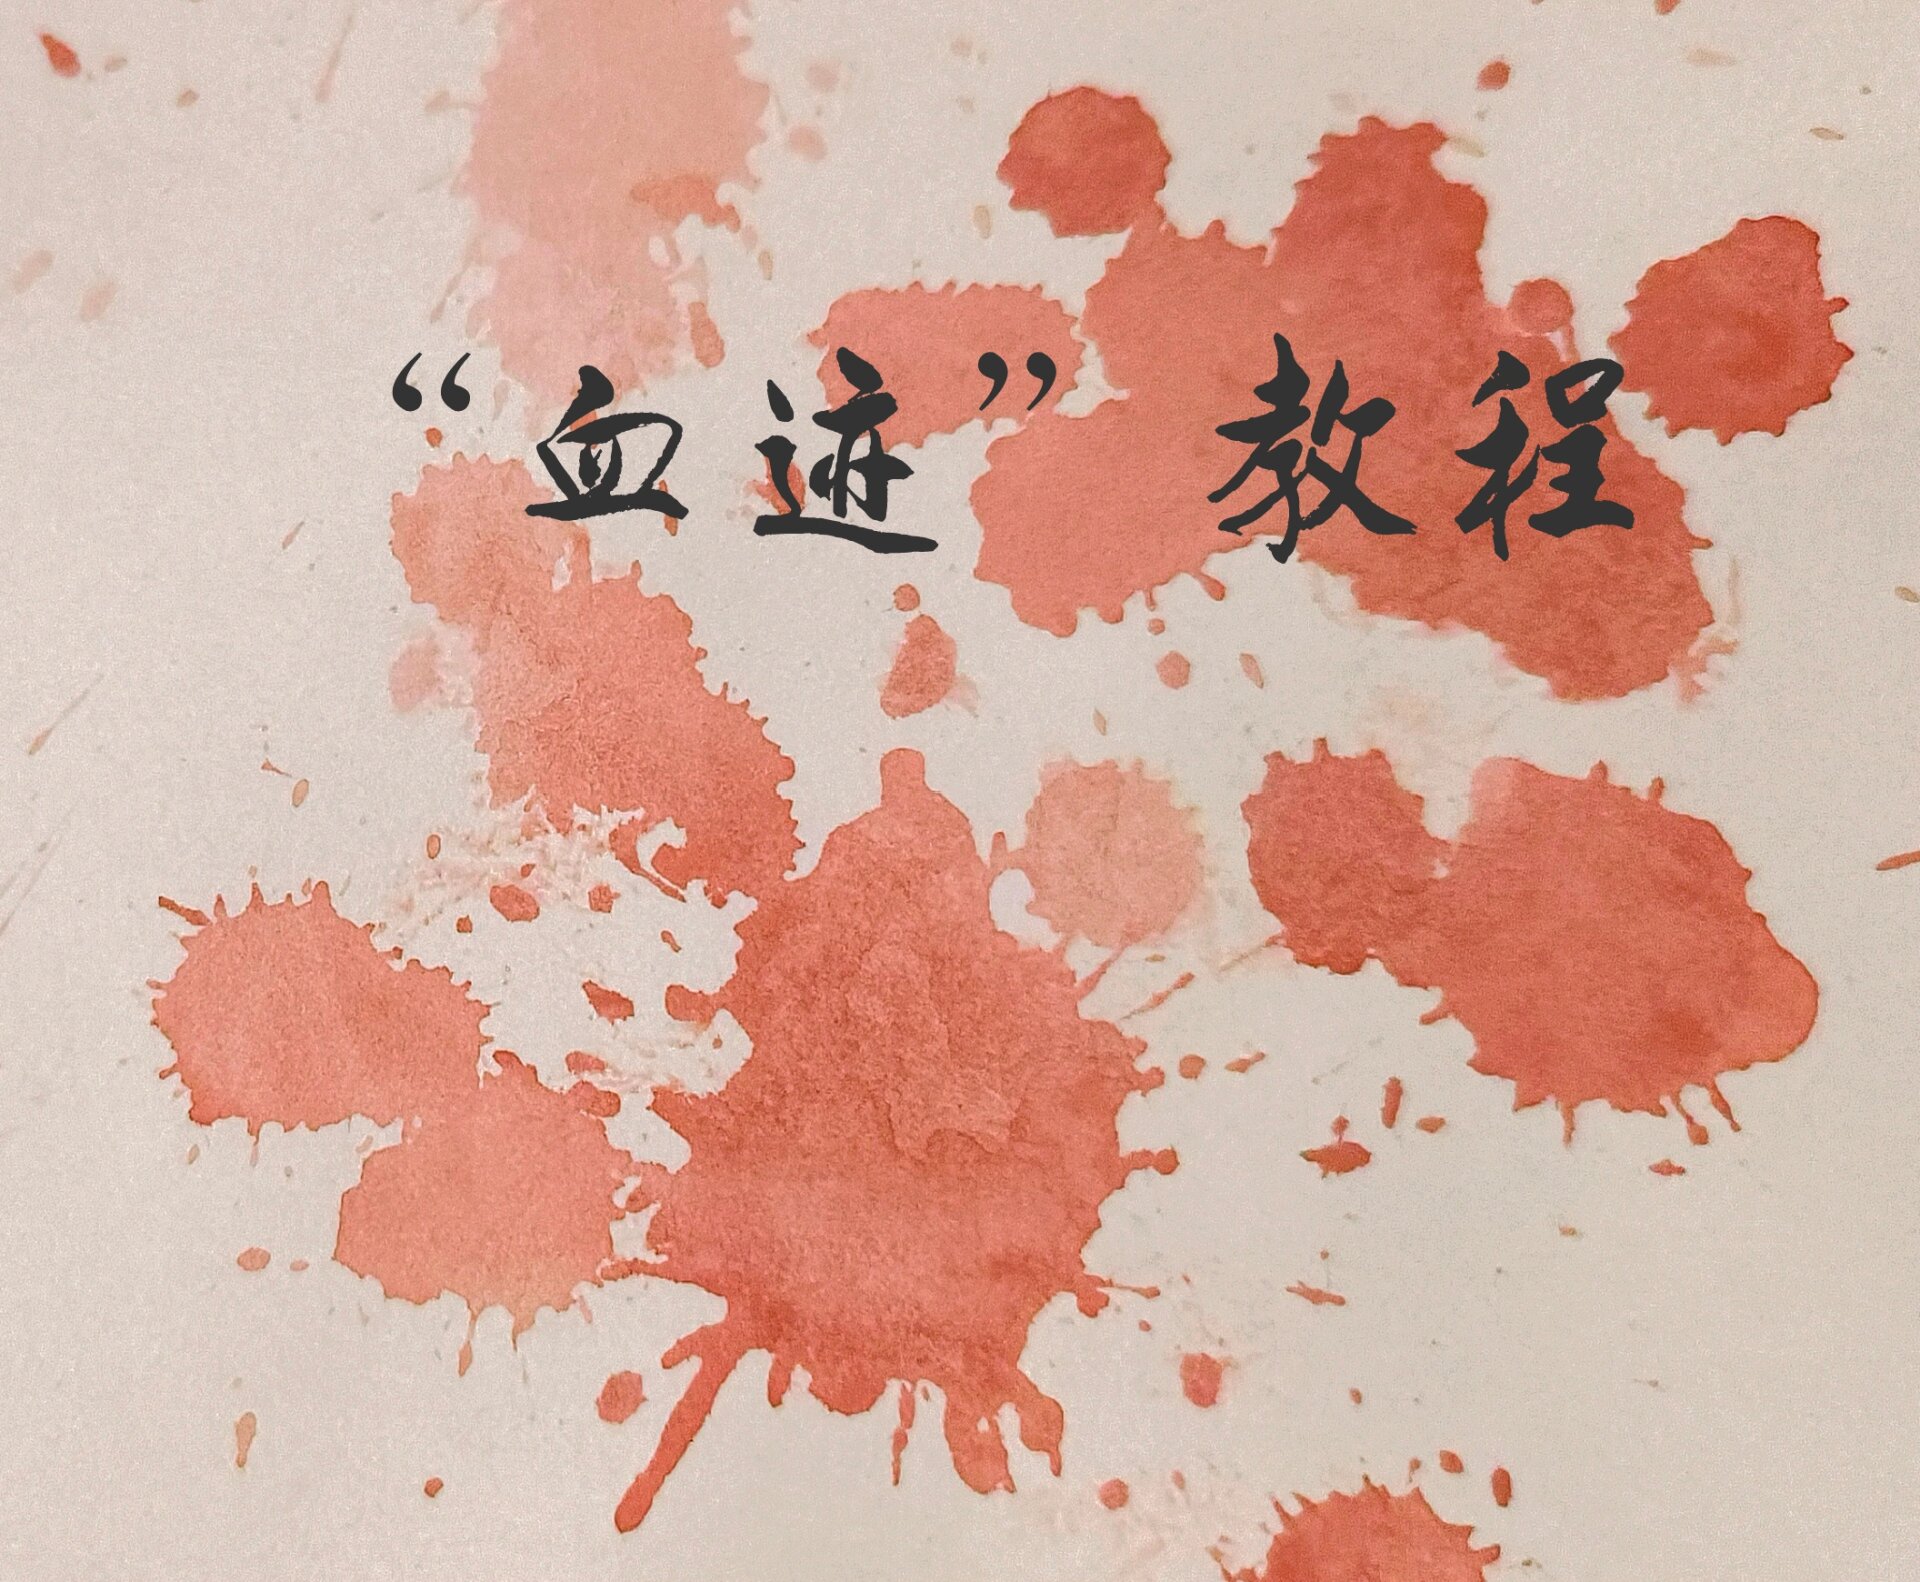 “血迹” 教程